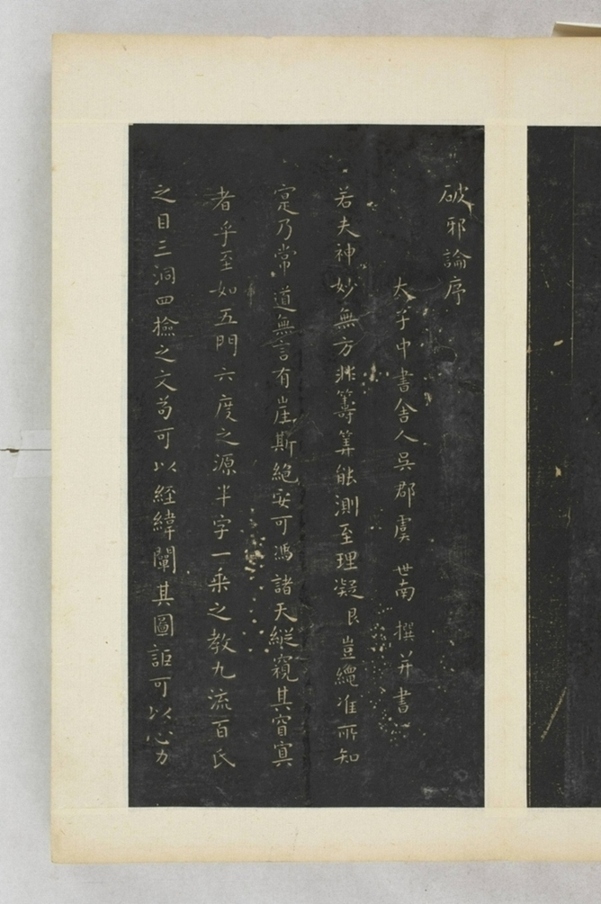 破邪論序
太子中書舍人吳郡虞世南撰并書
若夫神妙無方非籌筭能測至理凝艮豈繩准所知
寔乃常道無言有崖斯絕安可馮諸天縱窺其窅寞
者乎至如五門六度之源半字一乘之教九流百氏
之目三洞四撿之文苟可以經緯闡其圖詎可以心力